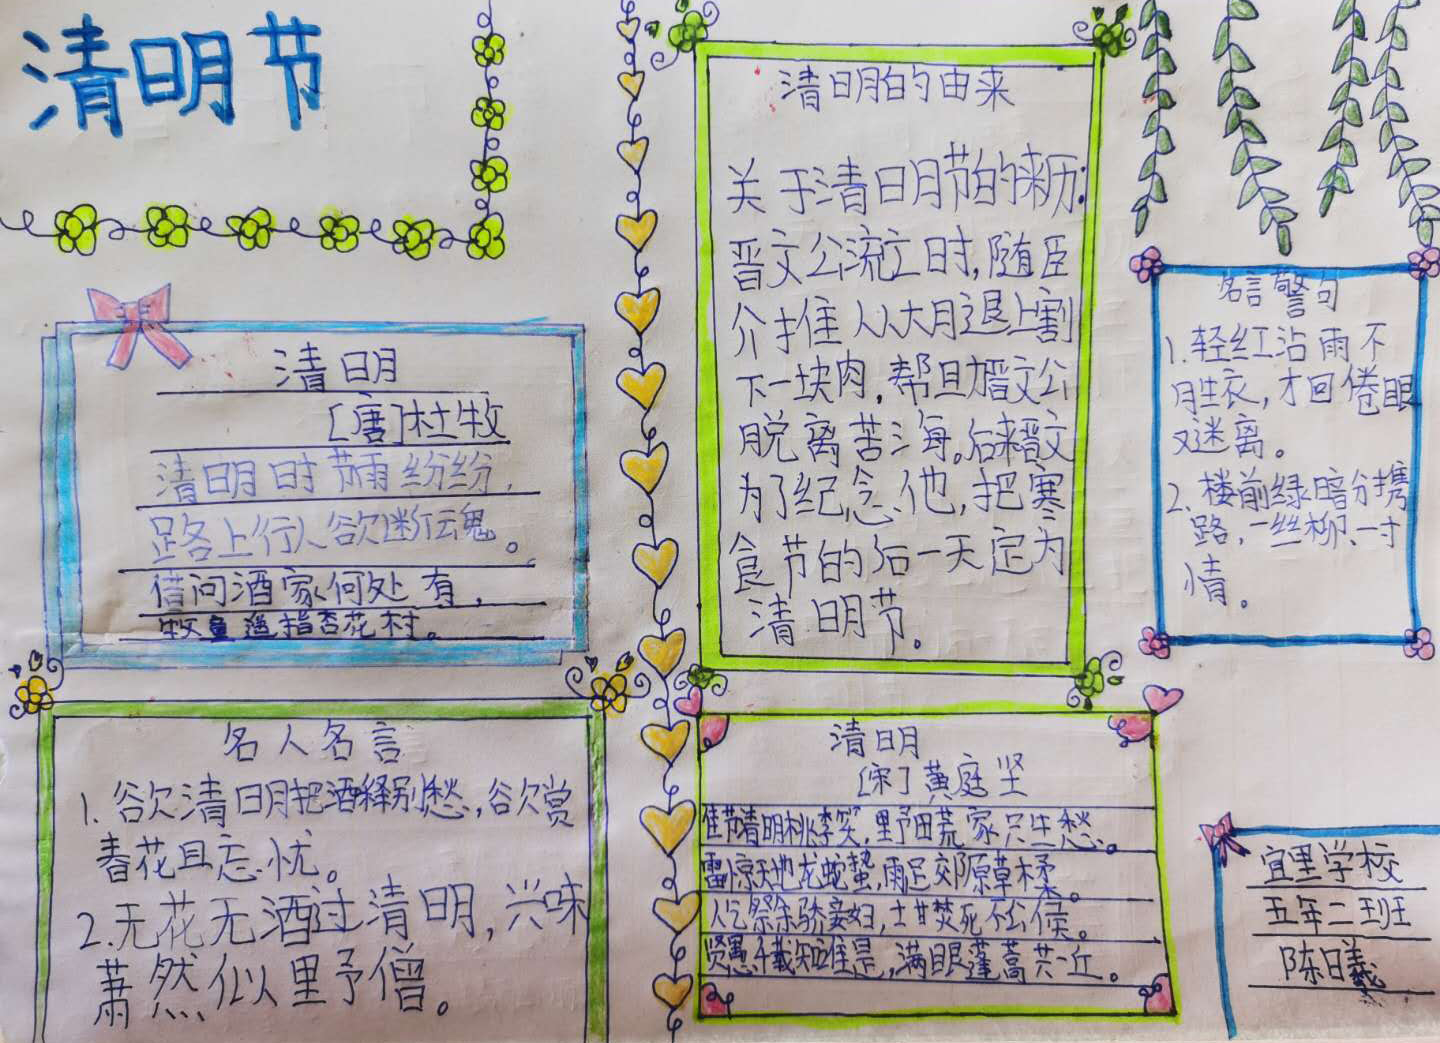 清明节
清明
[唐]杜牧
清明时节雨纷纷，
路上行人欲断魂。
借问酒家何处有，
牧童遥指杏花村。
名人名言
1.欲清明把酒释别愁，欲赏
春花且忘忧。
2.无花无酒过清明，兴味
萧然似野僧。
清明的由来
关于清明节的来历：
晋文公流亡时，随臣
介推从大月退上割
下一块肉，帮助晋文公
脱离苦海。后来晋文
为了纪念他，把寒
食节的后一天定为
清明节。
清明
[宋]黄庭坚
佳节清明桃李笑，野田荒冢只生愁。
雷惊天地龙蛇蛰，雨足郊原草木柔。
人乞祭余骄妾妇，士甘焚死不公侯。
贤愚千载知谁是，满眼蓬蒿共一丘。
名言警句
1.轻红沾雨不
胜衣，才回倦眼
又迷离。
2.楼前绿暗分携
路，一丝柳、一寸
情。
宜里学校
五年二班
陈曰義